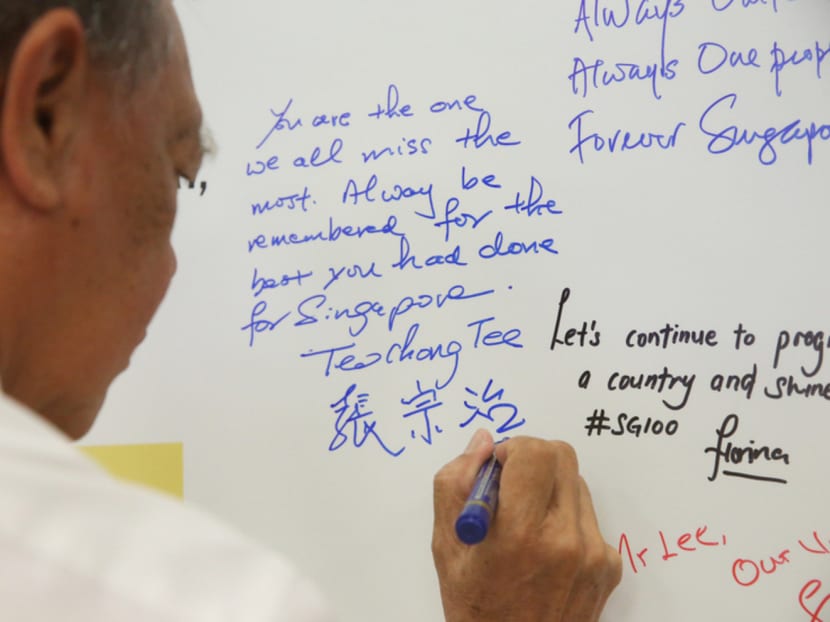 Always
Always One
Forever
You are the one
we all miss the
most. Alway be
remembered for the
best you had done
for Singapore.
Teo Chong Tee
張宗治
Let's continue to
a country and
#SG100
florina
Mr Lee,
Our